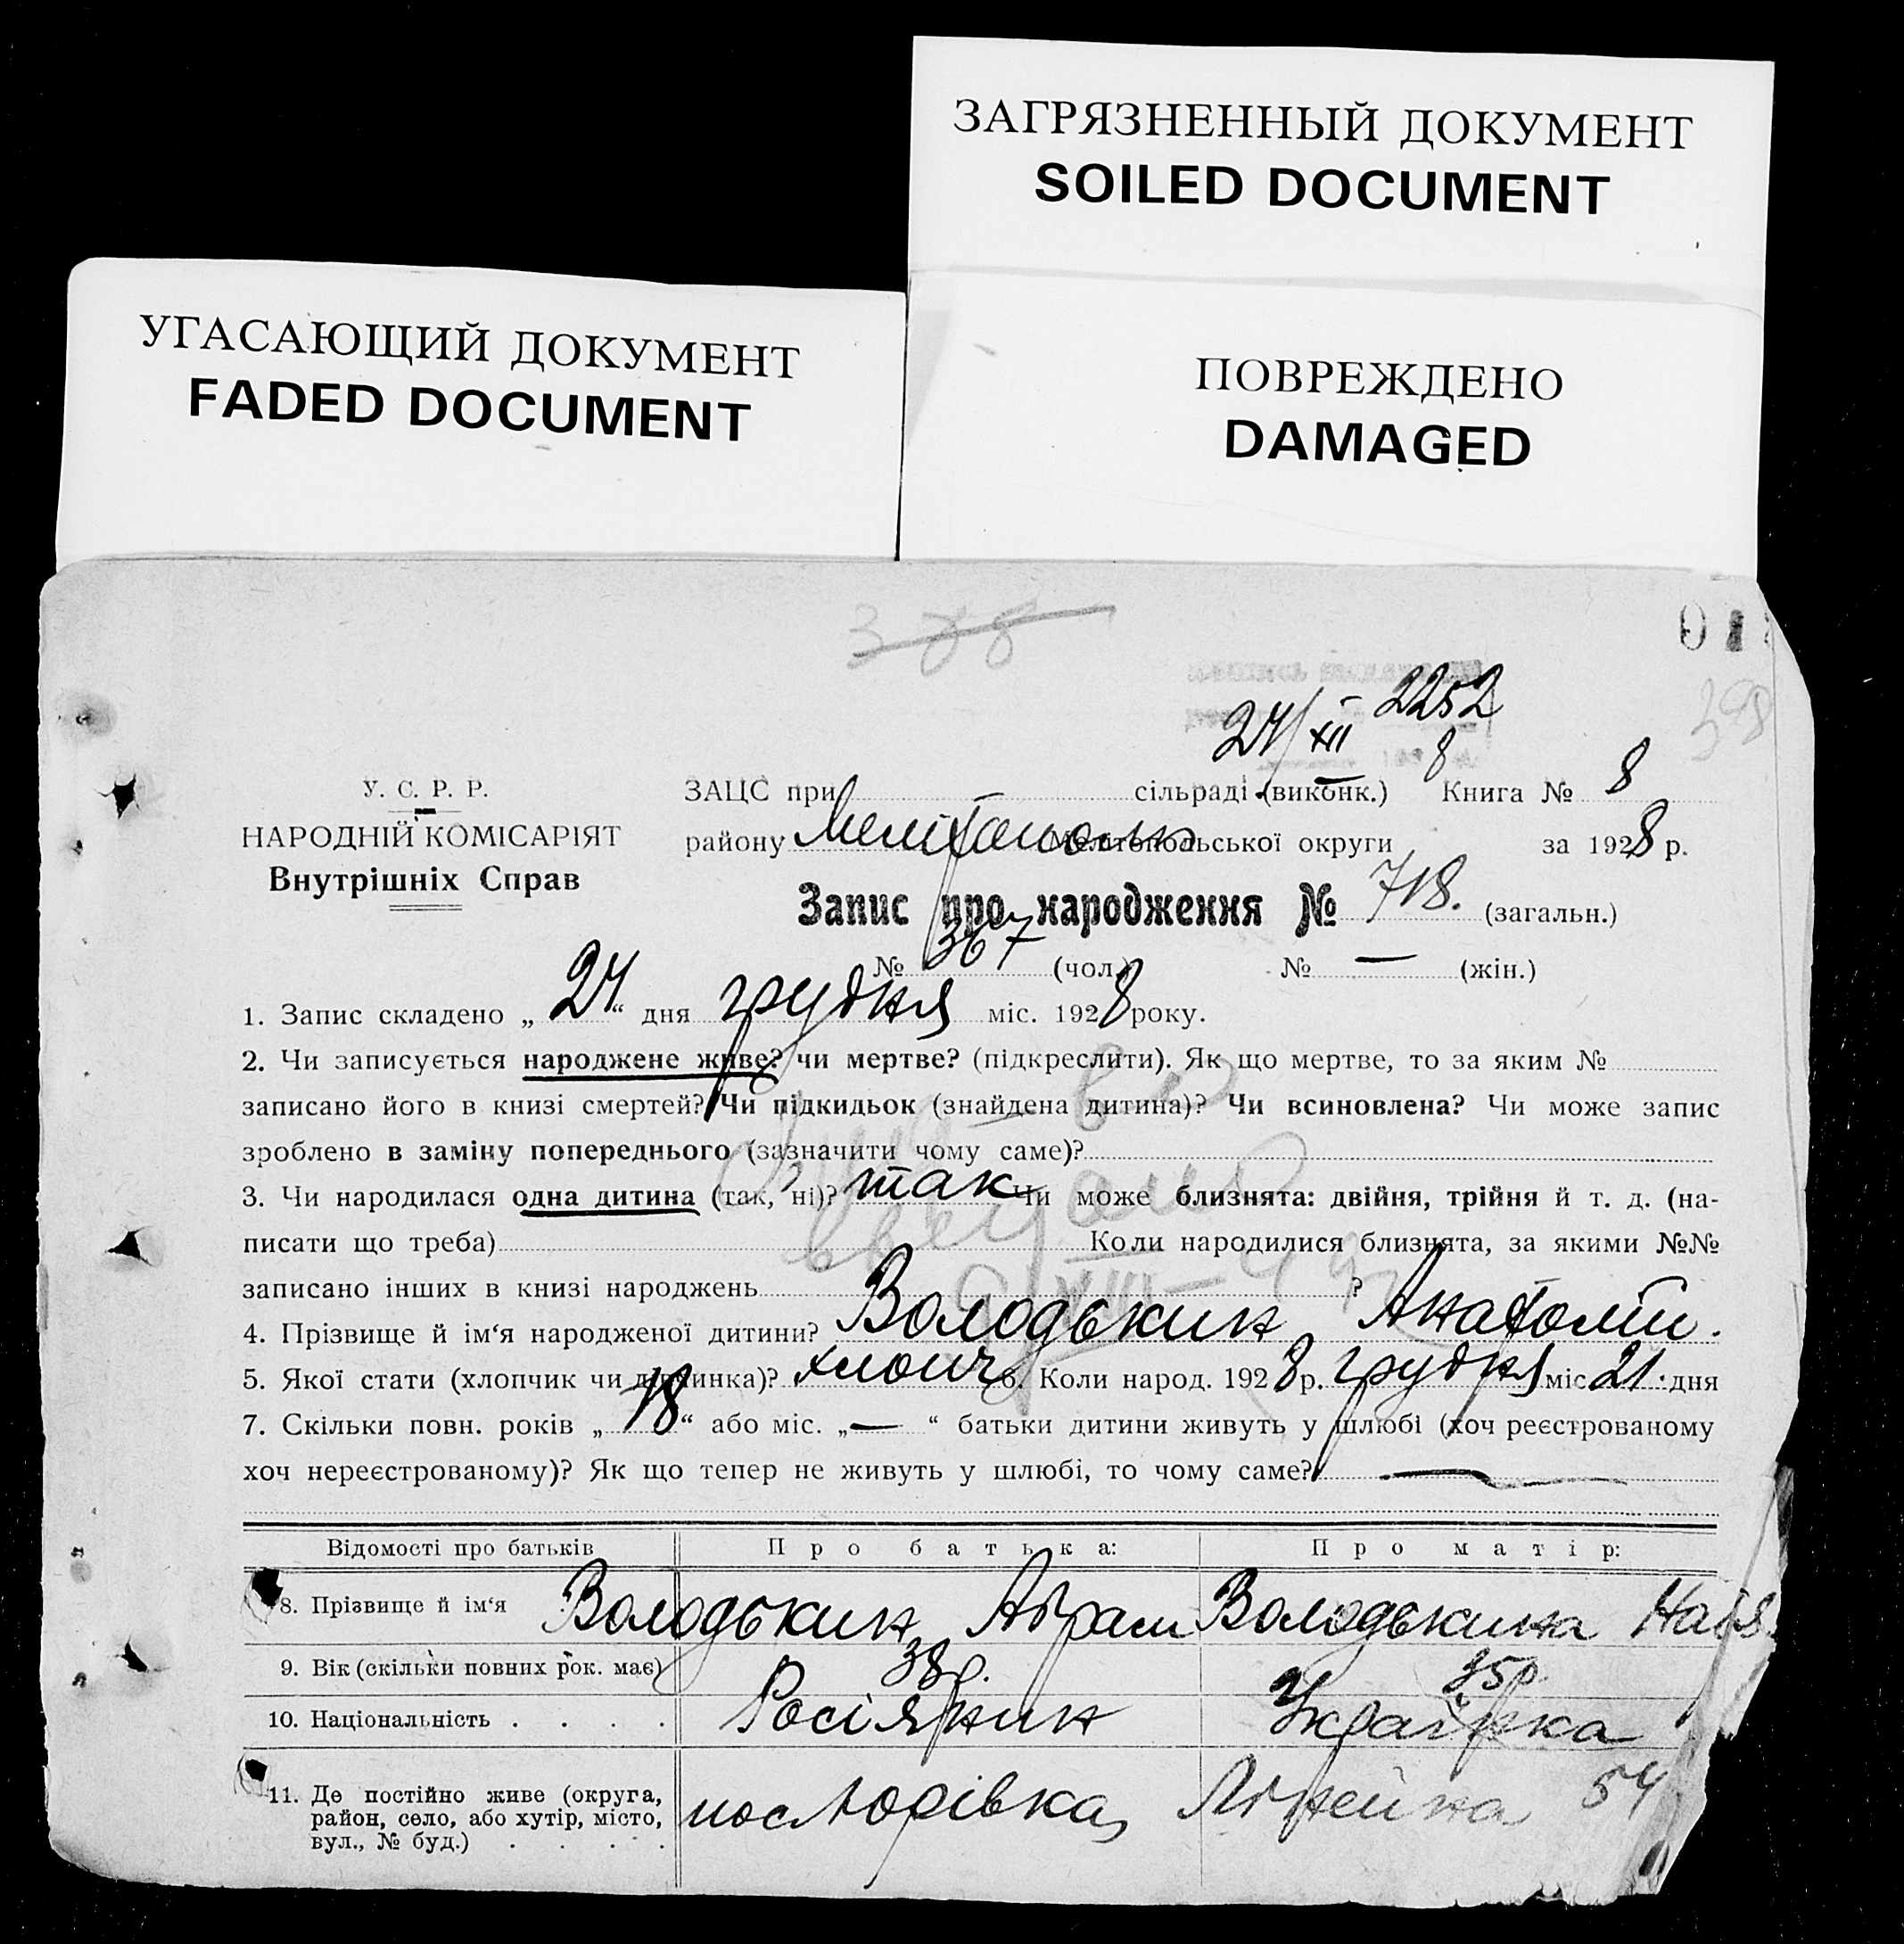 ЗАГРЯЗНЕННЫЙ ДОКУМЕНТ
SOILED DOCUMENT
УГАСАЮЩИЙ ДОКУМЕНТ
FADED DOCUMENT
ПОВРЕЖДЕНО
DAMAGED
388
398
24/XII 2252
8
У. С. Р. Р.
НАРОДНІЙ КОМІСАРІЯТ
Внутрішніх Справ
ЗАЦС при сільраді (виконк.) Книга № 8
району Мелітопольськ Мелітопольської округи за 1928 р.
Запис про народження № 718. (загальн.)
№ 367 (чол.) № — (жін.)
1. Запис складено „24“ дня грудня міс. 1928 року.
2. Чи записується народжене живе? чи мертве? (підкреслити). Як що мертве, то за яким №
записано його в книзі смертей? Чи підкидьок (знайдена дитина)? Чи всиновлена? Чи може запис
зроблено в заміну попереднього (зазначити чому саме)?
3. Чи народилася одна дитина (так, ні)? так Чи може близнята: двійня, трійня й т. д. (на-
писати що треба) Коли народилися близнята, за якими №№
записано інших в книзі народжень ?
4. Прізвище й ім‘я народженої дитини? Володькин Анатолій.
5. Якої стати (хлопчик чи дівчинка)? хлопч 6. Коли народ. 1928 р. грудня міс 21 дня
7. Скільки повн. років „18“ або міс. „—“ батьки дитини живуть у шлюбі (хоч реєстрованому
хоч нереєстрованому)? Як що тепер не живуть у шлюбі, то чому саме? —
Відомості про батьків Про батька: Про матір:
8. Прізвище й ім‘я Володькин Абрам Володькина
9. Вік (скільки повних рок. має) 38 р. 35 р
10. Національність . . . . Росіянин Українка
11. Де постійно живе (округа, район, село, або хутір, місто, вул., № буд.) . . . . пос Юрівка, Лінейна 54